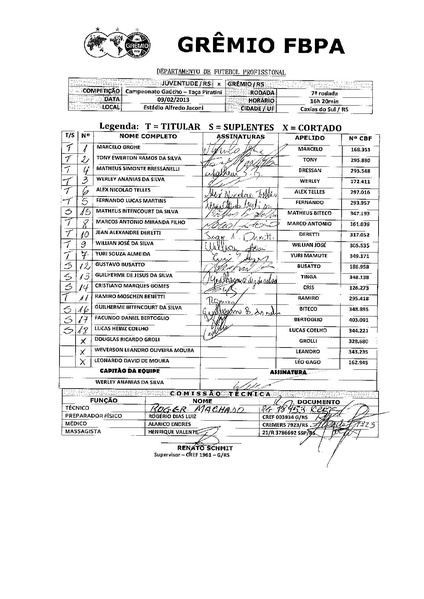 GRÊMIO FBPA
DEPARTAMENTO DE FUTEBOL PROFISSIONAL
JUVENTUDE / RS x GRÊMIO / RS
COMPETIÇÃO Campeonato Gaúcho - Taça Piratini RODADA 7ª rodada
DATA 09/02/2013 HORÁRIO 16h 20min
LOCAL Estádio Alfredo Jaconi CIDADE / UF Caxias do Sul / RS
Legenda: T = TITULAR S = SUPLENTES X = CORTADO
T/S Nº NOME COMPLETO ASSINATURAS APELIDO Nº CBF
T 1 MARCELO GROHE MARCELO 168.353
T 2 TONY EWERTON RAMOS DA SILVA TONY 295.890
T 4 MATHEUS SIMONETE BRESSANELLI 293.548
T 3 WERLEY ANANIAS DA SILVA WERLEY 172.411
T 6 ALEX NICOLAO TELLES ALEX TELLES 297.016
T 5 FERNANDO LUCAS MARTINS FERNANDO 293.957
S 15 MATHEUS BITENCOURT DA SILVA MATHEUS BITECO
T 8 MARCOS ANTONIO MIRANDA FILHO MARCO ANTONIO
T 10 JEAN ALEXANDRE DERETTI DERETTI 317.052
T 9 WILLIAN JOSÉ DA SILVA WILLIAN JOSÉ
T 7 YURI SOUZA ALMEIDA YURI MAMUTE 349.371
S 12 GUSTAVO BUSATTO BUSATTO
S 13 GUILHERME DE JESUS DA SILVA TINGA 348.138
S 14 CRISTIANO MARQUES GOMES CRIS 126.273
T 11 RAMIRO MOSCHEN BENETTI RAMIRO 295.418
S 16 GUILHERME BITENCOURT DA SILVA BITECO 348.895
S 17 FACUNDO DANIEL BERTOGLIO BERTOGLIO 403.091
S 18 LUCAS HEINZ COELHO LUCAS COELHO 344.221
X DOUGLAS RICARDO GROLI GROLLI 329.680
X WEVERSON LEANDRO OLIVEIRA MOURA LEANDRO 343.295
X LEONARDO DAVID DE MOURA LÉO GAGO 162.945
CAPITÃO DA EQUIPE ASSINATURA
WERLEY ANANIAS DA SILVA
COMISSÃO TÉCNICA
FUNÇÃO NOME DOCUMENTO
TÉCNICO ROGER MACHADO
PREPARADOR FÍSICO ROGÉRIO DIAS LUIZ CREF 003934 G/RS
MÉDICO ALARICO ENDRES CREMERS 7923/RS
MASSAGISTA HENRIQUE VALENTE 21/R 3786692 SSP/RS
RENATO SCHMIT
Supervisor - CREF 1961 - G/RS